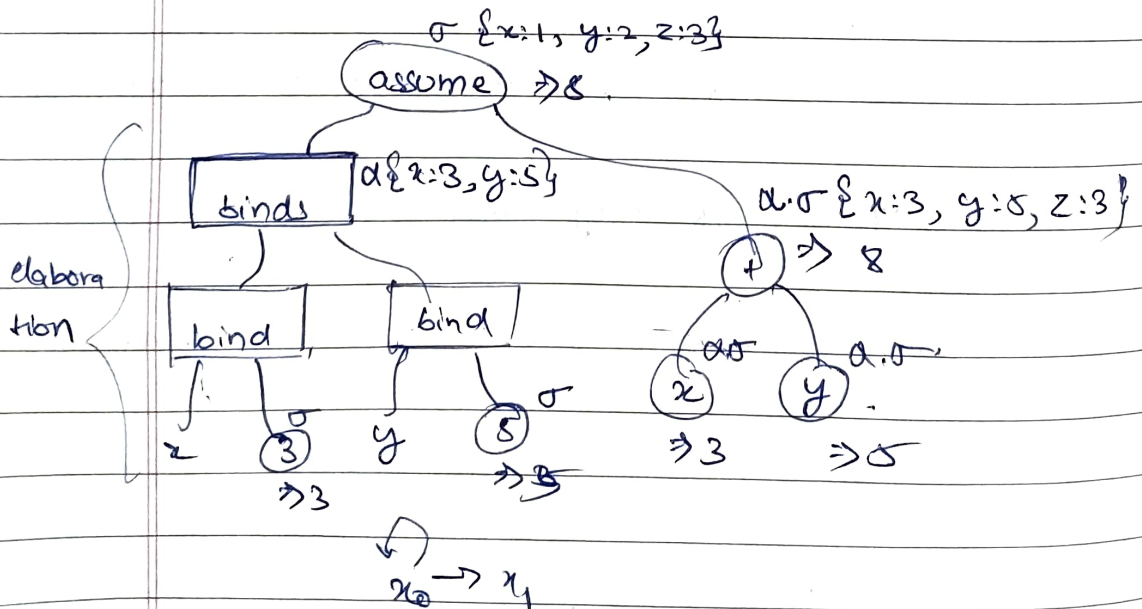 σ {x:1, y:2, z:3}
assume ⇒ 8.
binds α{x:3, y:5}
α.σ {x:3, y:5, z:3}
+ ⇒ 8
elabora
tion
bind bind
x ασ y α.σ
x 3 σ y 5 σ
⇒3 ⇒5
⇒3 ⇒5
x₀ → x₁